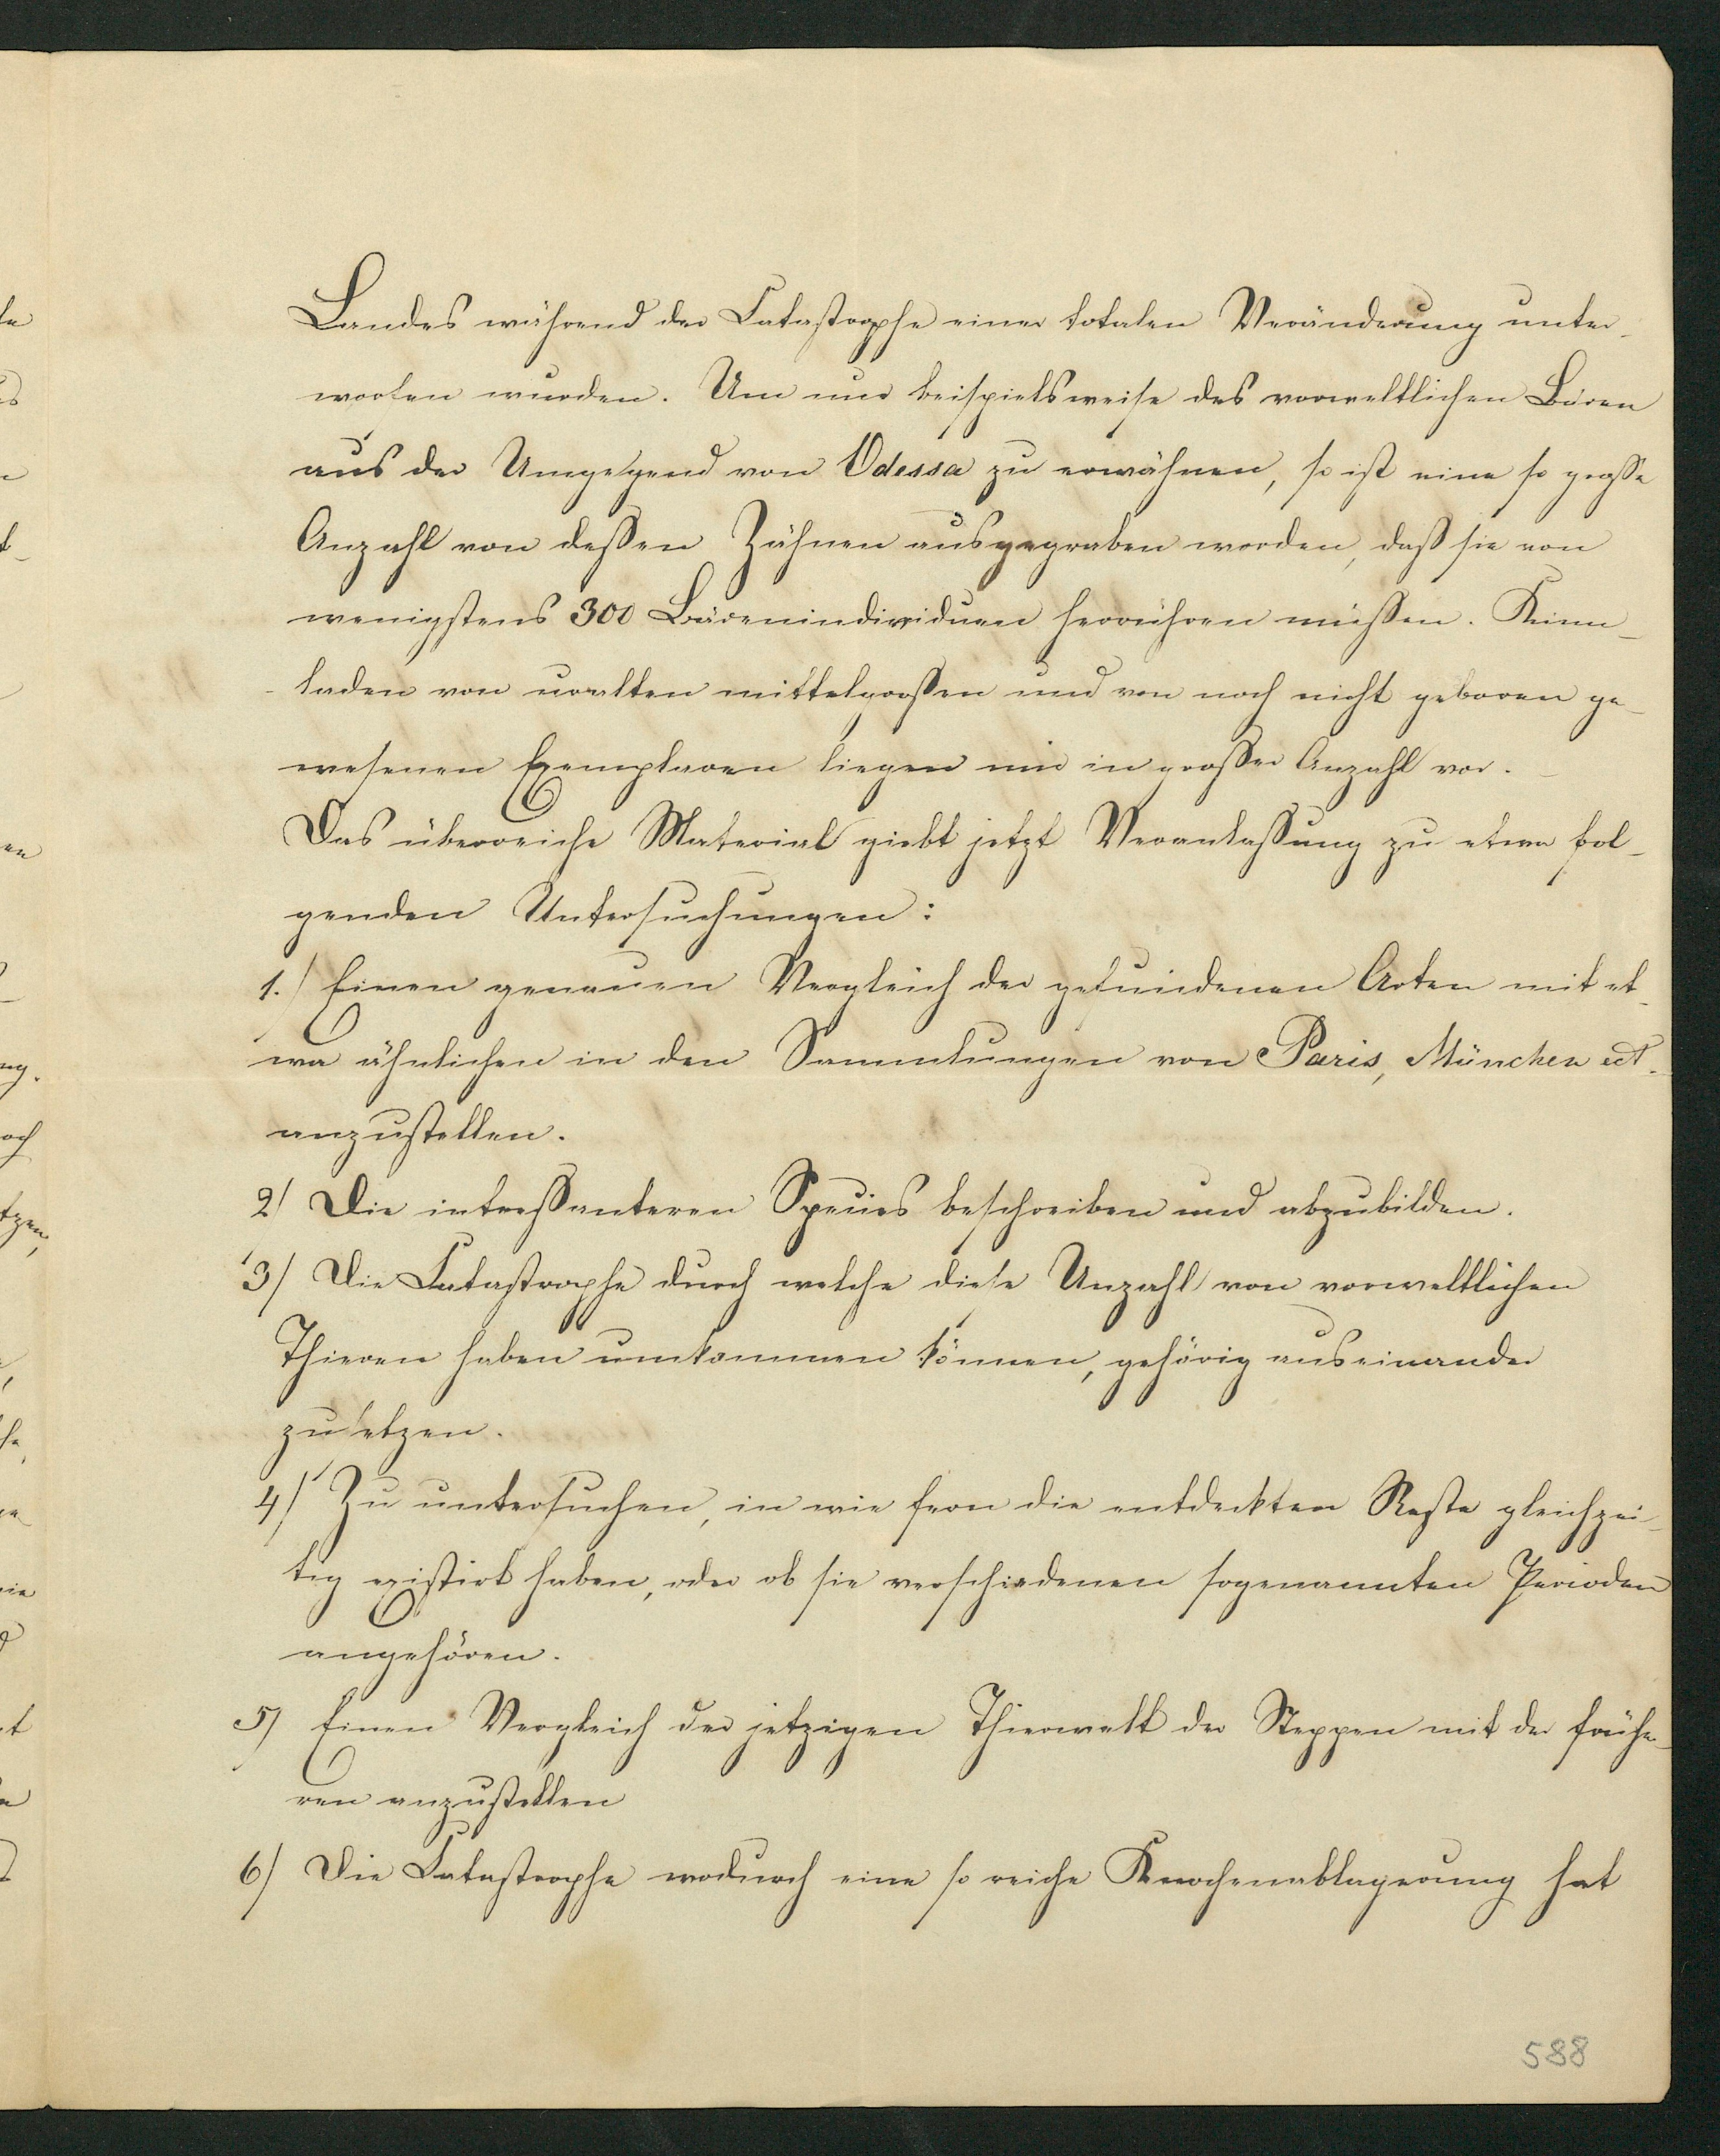 Landes während der Catastrophe einer totalen Veränderung unter-
worfen wurden. Um nur beispielsweise des vorweltlichen Bären
aus der Umgegend von Odessa zu erwähnen, so ist eine so große
Anzahl von deßen Zähnen ausgegraben worden, daß sie von
wenigstens 300 Bärenindividuen herrühren müßen. Kinn-
laden von uralten mittelgroßen und von noch nicht geboren ge-
wesenen Exemplaren liegen mir in großer Anzahl vor. -
Das überreiche Material giebt jetzt Veranlaßung zu etwa fol-
genden Untersuchungen:
1./ Einen genauen Vergleich der gefundenen Arten mit et-
wa ähnlichen in den Sammlungen von Paris, München ect.
anzustellen.
2/ Die intreßanteren Species beschreiben und abzubilden.
3/ Die Catastrophe durch welche diese Unzahl von vorweltlichen
Thieren haben umkommen können, gehörig auseinander
zusetzen.
4/ Zu untersuchen, in wie fern die entdeckten Reste gleichzei-
tig existirt haben, oder ob sie verschiedenen sogenannten Perioden
angehören.
5/ Einen Vergleich der jetzigen Thierwelt der Steppen mit der frühe-
ren anzustellen
6/ Die Catastrophe wodurch eine so reiche Knochenablagerung hat
588